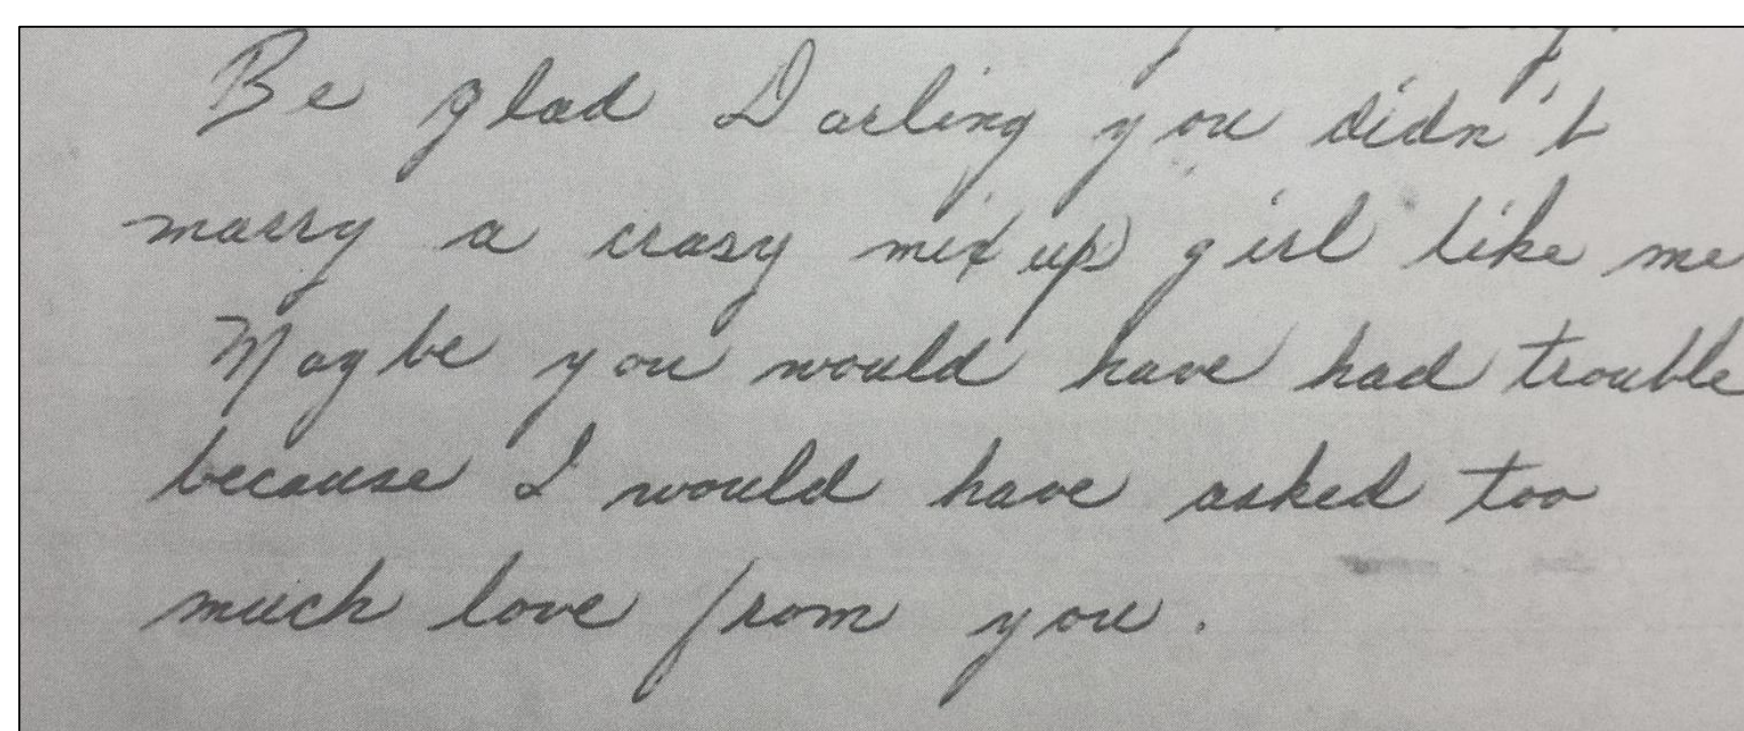 Be glad Darling you didn't
marry a crasy mix up girl like me
Maybe you would have had trouble
because I would have asked too
much love from you.